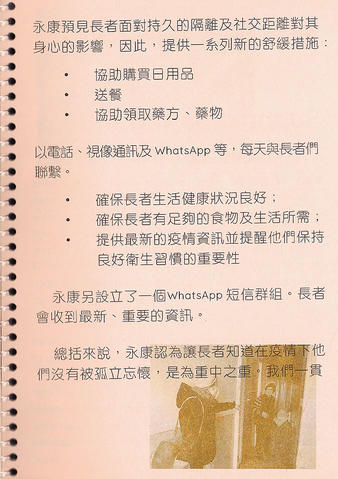 永康預見長者面對持久的隔離及社交距離對其
身心的影響，因此，提供一系列新的舒緩措施：
• 協助購買日用品
• 送餐
• 協助領取藥方、藥物
以電話、視像通訊及 WhatsApp 等，每天與長者們
聯繫。
• 確保長者生活健康狀況良好；
• 確保長者有足夠的食物及生活所需；
• 提供最新的疫情資訊並提醒他們保持
良好衛生習慣的重要性
永康另設立了一個WhatsApp 短信群組。長者
會收到最新、重要的資訊。
總括來說，永康認為讓長者知道在疫情下他
們沒有被孤立忘懷，是為重中之重。我們一貫